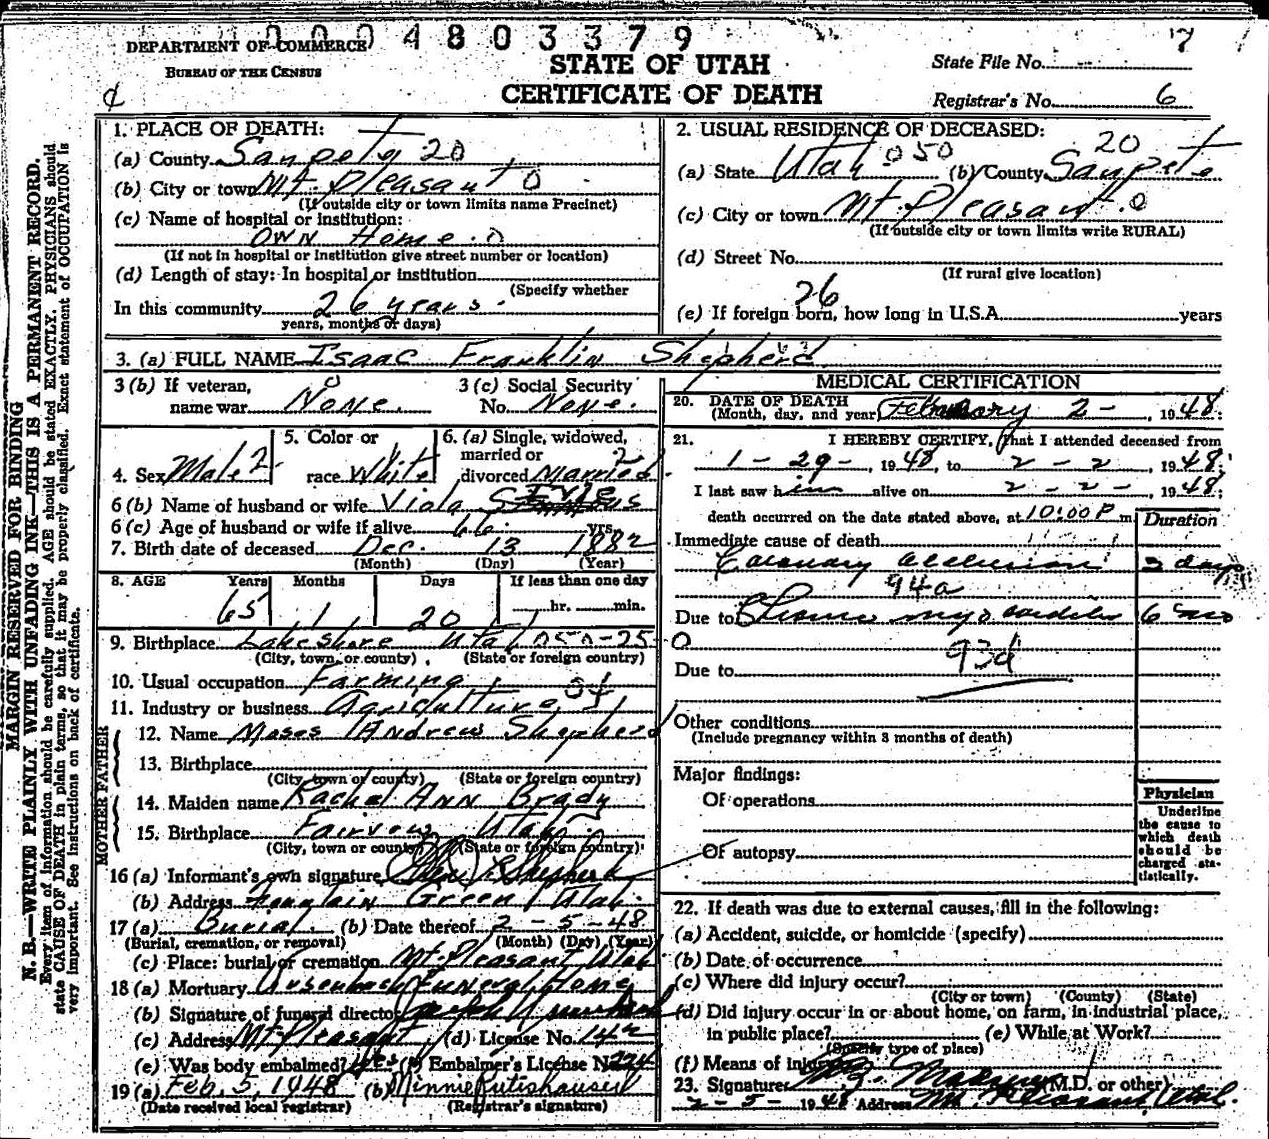 0004803379
DEPARTMENT OF COMMERCE
BUREAU OF THE CENSUS
STATE OF UTAH
CERTIFICATE OF DEATH
State File No. 7
Registrar's No. 6
MARGIN RESERVED FOR BINDING
N. B.—WRITE PLAINLY WITH UNFADING INK—THIS IS A PERMANENT RECORD.
Every item of information should be carefully supplied. AGE should be stated EXACTLY. PHYSICIANS should
state CAUSE OF DEATH in plain terms, so that it may be properly classified. Exact statement of OCCUPATION is
very important. See instructions on back of certificate.
1. PLACE OF DEATH:
(a) County Sanpete 20
(b) City or town Mt. Pleasant 0
(If outside city or town limits name Precinct)
(c) Name of hospital or institution:
Own Home. 0
(If not in hospital or Institution give street number or location)
(d) Length of stay: In hospital or institution
(Specify whether
In this community 26 years.
years, months or days)
2. USUAL RESIDENCE OF DECEASED:
(a) State Utah 050 (b) County Sanpete 20
(c) City or town Mt. Pleasant. 0
(If outside city or town limits write RURAL)
(d) Street No.
(If rural give location)
26
(e) If foreign born, how long in U.S.A. years
3. (a) FULL NAME Isaac Franklin Shepherd
3 (b) If veteran,
name war None. 0
3 (c) Social Security
No. None.
4. Sex Male 2
5. Color or
race White
6. (a) Single, widowed,
married or
divorced Married 2
6 (b) Name of husband or wife Viola
6 (c) Age of husband or wife if alive 66 yrs.
7. Birth date of deceased Dec. 13 1882
(Month) (Day) (Year)
8. AGE Years Months Days If less than one day
65 1 20 hr. min.
9. Birthplace Lakeshore Utah 050-250
(City, town, or county) (State or foreign country)
10. Usual occupation Farming
11. Industry or business Agriculture
FATHER
12. Name Moses Andrew Shepherd
13. Birthplace
(City, town or county) (State or foreign country)
MOTHER
14. Maiden name Rachel Ann Brady
15. Birthplace Fairview Utah
(City, town or county) (State or foreign country)
16 (a) Informant's own signature Shepherd
(b) Address Fountain Green Utah.
17 (a) Burial. (b) Date thereof 2-5-48
(Burial, cremation, or removal) (Month) (Day) (Year)
(c) Place: burial or cremation Mt. Pleasant Utah
18 (a) Mortuary Ursenbach Funeral Home
(b) Signature of funeral director
(c) Address Mt Pleasant (d) License No. 142
(e) Was body embalmed? Yes (f) Embalmer's License No.
19 (a) Feb. 5, 1948 (b) Minnie Rutishauser
(Date received local registrar) (Registrar's signature)
MEDICAL CERTIFICATION
20. DATE OF DEATH
(Month, day, and year) February 2-, 1948
21. I HEREBY CERTIFY, that I attended deceased from
1-29-, 1948, to 2-2-, 1948;
I last saw him alive on 2-2-, 1948;
death occurred on the date stated above, at 10:00 P m.
Duration
Immediate cause of death
Coronary occlusion 3 days
94a
Due to Chronic myocarditis 6 mo
93d
Due to
Other conditions
(Include pregnancy within 3 months of death)
Major findings:
Of operations
Of autopsy
Physician
Underline
the cause to
which death
should be
charged sta-
tistically.
22. If death was due to external causes, fill in the following:
(a) Accident, suicide, or homicide (specify)
(b) Date of occurrence
(c) Where did injury occur?
(City or town) (County) (State)
(d) Did injury occur in or about home, on farm, in industrial place,
in public place? (e) While at Work?
(Specify type of place)
(f) Means of injury
23. Signature (M.D. or other)
2-5- 1948 Address Mt. Pleasant, Utah.